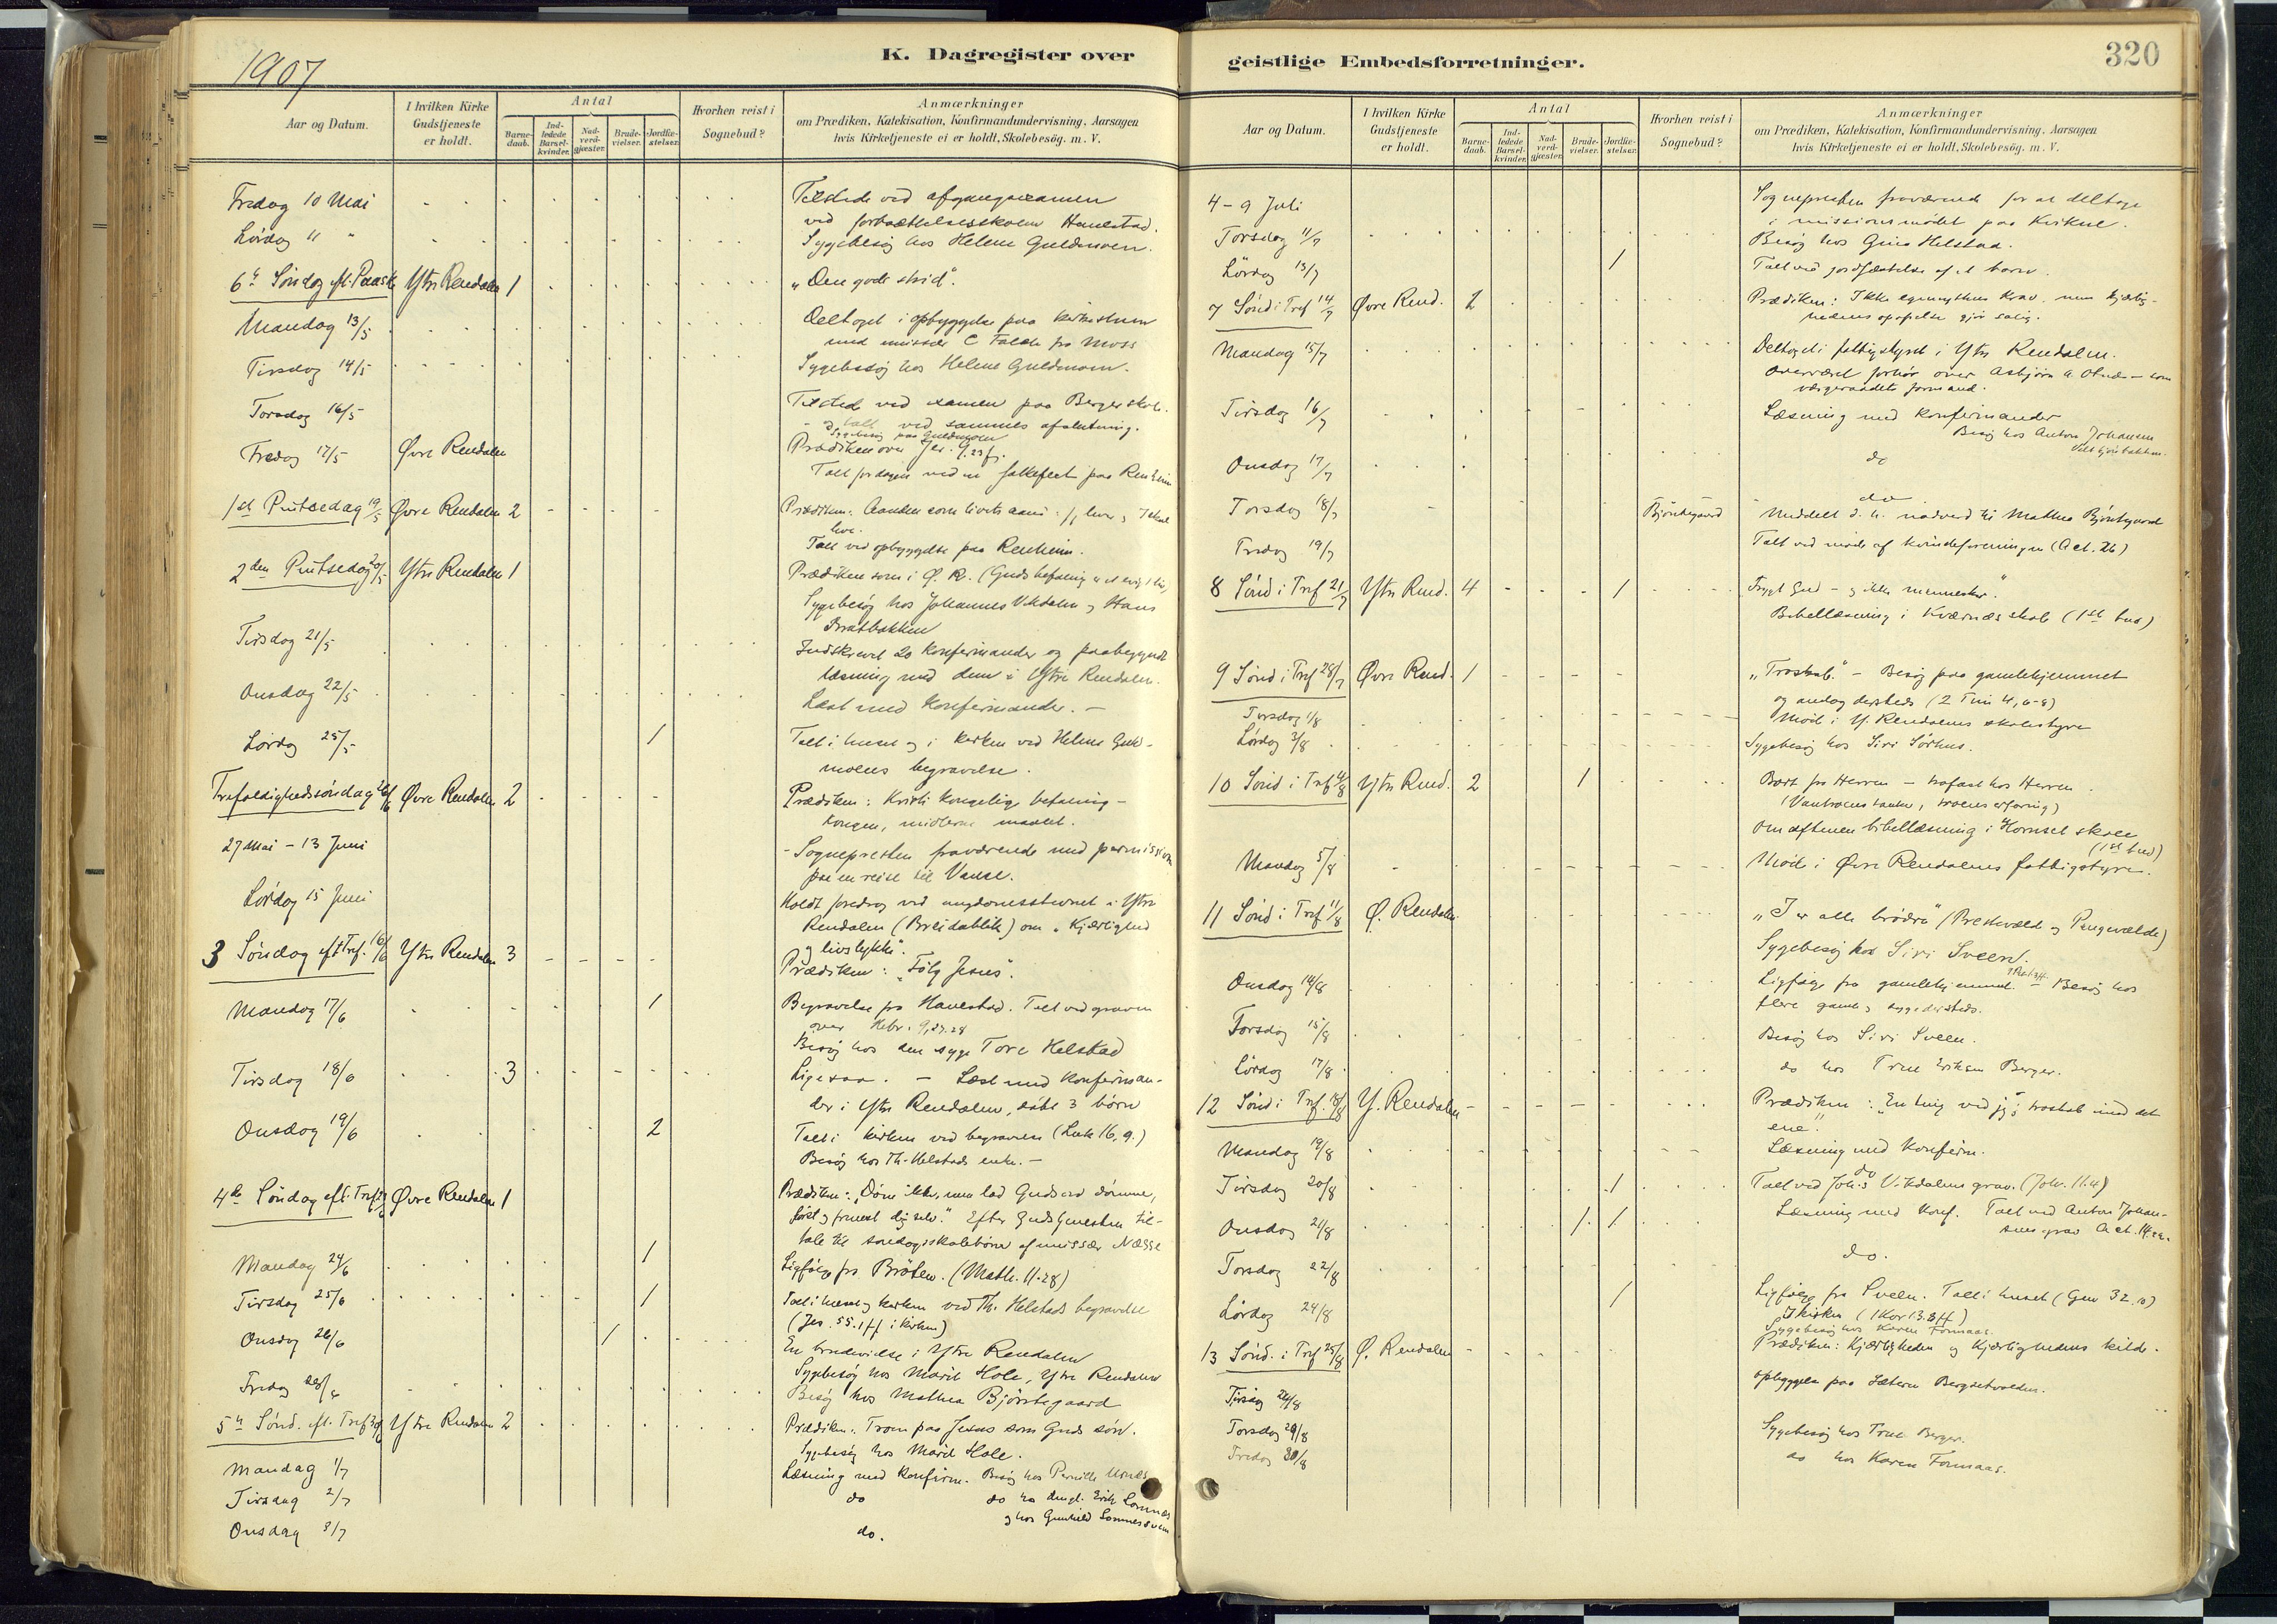 1907
K. Dagregister over
Aar og Datum.
I hvilken Kirke Gudstjeneste er holdt.
Antal
Barne-daab.
Ind-ledede Barsel-kvinder.
Nad-verd-gjæster.
Brude-vielser.
Jordfæ-stelser.
Hvorhen reist i Sognebud?
Anmærkninger
om Prædiken, Katekisation, Konfirmandundervisning, Aarsagen
hvis Kirketjeneste ei er holdt, Skolebesøg. m. V.
Fredag 10 Mai Tilstede ved afgangsexamen
ved fortsættelsesskolen Hanestad.
Lördag 11 " Sygebesøg hos Helene Guldmoen.
6te Söndag eft. Paaske Ytre Rendalen 1 "Den gode strid".
Mandag 13/5 Deltaget i opbyggelse paa
med C fra Moss
Tirsdag 14/5 Sygebesøg hos Helene Guldmoen.
Torsdag 16/5 Tilstede ved examen paa Berger skole.
- Talt ved sammes afslutning.
Sygebesøg paa Guldmoen
Fredag 17/5 Øvre Rendalen Prædiken over Jer. 9.23 f.
Talt for dagen ved en folkefest paa
1ste Pintsedag 19/5 Øvre Rendalen 2 Prædiken: Aanden som livets aand: Jeg lever, I skal
leve.
Talt ved opbyggelse paa Renheim.
2den Pintsedag 20/5 Ytre Rendalen 1 Prædiken som i Ø. R. (Guds befaling er et evigt liv)
Sygebesøg hos Johannes Vikdalen og Hans
Bratbakken
Tirsdag 21/5 Indskrevet 20 konfirmander og paabegyndt
læsning med dem i Ytre Rendalen.
Onsdag 22/5 Læst med Konfirmander. -
Lördag 25/5 1 Talt i huset og i kirken ved Helene Guld-
moens begravelse.
Trefoldighedssöndag 26/5 Øvre Rendalen 2 Prædiken: Kristi kongelige befaling -
Kongen, midlerne, maalet.
27 Mai - 13 Juni - Sognepresten fraværende med permission
paa en reise til Vanse.
Lördag 15 Juni Holdt foredrag ved ungdomsstevnet i Ytre
Rendalen (Breidablik) om "Kjærlighed
og livslykke".
3 Söndag eft Tref. 16/6 Ytre Rendalen 3 Prædiken: "Følg Jesus".
Mandag 17/6 1 Begravelse fra Hanestad. Talt ved graven
over Hebr. 9,27.28
Besøg hos den syge Tore Helstad
Tirsdag 18/6 3 Ligesaa. - Læst med konfirman-
der i Ytre Rendalen, døbt 3 børn
Onsdag 19/6 2 Talt i kirken ved begravelse (Luk 16,9.)
Besøg hos Th. Helstads enke. -
4de Söndag eft. Tref. 23/6 Øvre Rendalen 1 Prædiken: "Døm ikke, men lad Guds ord dømme,
først og fremst dig selv." Efter Gudstjenesten til-
tale til søndagsskolebørn af missær Næsse
Mandag 24/6 1 Ligfølge fra Bröten. (Math. 11-28)
Tirsdag 25/6 1 Talt i huset og kirken ved Th. Helstads begravelse
(Jes. 55.1ff i kirken)
Onsdag 26/6 1 En brudevielse i Ytre Rendalen
Sygebesøg hos Marit Hole, Ytre Rendalen
Fredag 28/6 Besøg hos Mathea Bjöntegaard
5te Sönd. eft. Tref 30/6 Ytre Rendalen 2 Prædiken: Troen paa Jesus som Guds søn.
Sygebesøg hos Marit Hole.
Mandag 1/7 Læsning med konfirm. Besøg hos Pernille
Tirsdag 2/7 do do hos Erik Lomnæs
og hos Gunhild
Onsdag 3/7 do.
geistlige Embedsforretninger.
320
Aar og Datum.
I hvilken Kirke Gudstjeneste er holdt.
Antal
Barne-daab.
Ind-ledede Barsel-kvinder.
Nad-verd-gjæster.
Brude-vielser.
Jordfæ-stelser.
Hvorhen reist i Sognebud?
Anmærkninger
om Prædiken, Katekisation, Konfirmandundervisning, Aarsagen
hvis Kirketjeneste ei er holdt, Skolebesøg. m. V.
4-9 Juli Sognepresten fraværende for at deltage
i missionsmødet paa Kvikne.
Torsdag 11/7 Besøg hos Gina Helstad.
Lördag 13/7 1 Talt ved jordfæstelse af et barn.
7 Sönd i Tref 14/7 Øvre Rend. 2 Prædiken: Ikke krav, men kjærlig-
hedens opofrelse gjør salig.
Mandag 15/7 Deltaget i fattigstyret i Ytre Rendalen.
Overværet forhør over Asbjörn som
værgeraadets formand.
Tirsdag 16/7 Læsning med Konfirmander
Besøg hos Anton Johansen
Onsdag 17/7 do
Torsdag 18/7 Bjöntegaard do
Meddelt d. h. nadverd til Mathea Bjöntegaard
Fredag 19/7 Talt ved møde af kvindeforeningen (Act. 26)
8 Sönd i Tref 21/7 Ytre Rend. 4 1 "Frygt Gud - og ikke mennesker".
Bibellæsning i Kværnæs skole (1ste bud)
9 Sönd i Tref 28/7 Øvre Rend. 1 "Troskab." - Besøg paa gamlehjemmet
og andag dersteds (2 Tim 4, 6-8)
Torsdag 1/8 Möde i Y. Rendalens skolestyre
Lördag 3/8 Sygebesøg hos Siri Sörhus.
10 Sönd i Tref 4/8 Ytre Rend. 2 1 Bort fra Herren - trofast hos Herren.
(Vantroens tanker, troens erfaring)
Om aftenen bibellæsning i Hornset skole
(1ste bud)
Mandag 5/8 Möde i Øvre Rendalens fattigstyre.
11 Sönd i Tref 11/8 Ø. Rendalen "I er alle brødre" (Prestevælde og Pengevælde)
Sygebesøg hos Siri Sveen.
Onsdag 14/8 Ligfølge fra gamlehjemmet - Besøg hos
flere gamle og syge dersteds.
Torsdag 15/8 Besøg hos Siri Sveen.
Lördag 17/8 do hos True Eriksen Berger.
12 Sönd i Tref. 18/8 Y. Rendalen Prædiken: "En ting ved jeg"; troskab imod det
ene!
Mandag 19/8 Læsning med Konfirm.
do
Tirsdag 20/8 1 Talt ved Joh.s Vikdalens grav. (Joh. 11.4)
Onsdag 21/8 1 1 Læsning med Konf. Talt ved Anton Johan-
sens grav Act. 14.22.
Torsdag 22/8 do.
Lördag 24/8 1 Ligfølge fra Sveen. Talt i huset (Gen 32.10)
I kirken (1 Kor 13.8ff)
Sygebesøg hos Karen Fonnaas.
13 Sönd. i Tref 25/8 Ø. Rendalen Prædiken: Kjærligheden og Kjærlighedens kilde.
Tirsdag /8 opbyggelse paa Sæteren Bergsetvolden.
Torsdag 29/8 Sygebesøg hos True Berger.
Fredag 30/8 do hos Karen Fonnaas.